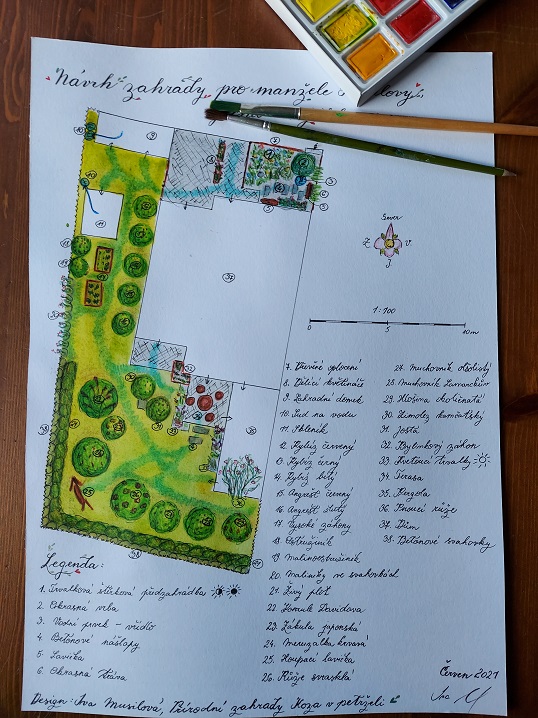 Návrh zahrady pro manžele
Sever
Z V
J
1:100
0 5 10m
Legenda:
1. Trvalková štěrková předzahrádka
2. Okrasná vrba
3. Vodní prvek - vřídlo
4. Betónové nášlapy
5. Lavička
6. Okrasná tráva
7. Dřevěné oplocení
8. Dělící květináče
9. Zahradní domek
10. Sud na vodu
11. Skleník
12. Rybíz červený
13. Rybíz černý
14. Rybíz bílý
15. Angrešt černý
16. Angrešt žlutý
17. Vysoké záhony
18. Ostružiník
19. Malinoostružiník
20. Maliníky ve svahovkách
21. Živý plot
22. Komule Davidova
23. Zákula japonská
24. Meruzalka krvavá
25. Houpací lavička
26. Růže svraskalá
27. Muchovník olšolistý
28. Muchovník Lamarckův
29. Hlošina okoličnatá
30. Zimolez kamčatský
31. Josta
32. Bylinkový záhon
33. Kvetoucí trvalky
34. Terasa
35. Pergola
36. Pnoucí růže
37. Dům
38. Betónové svahovky
Červen 2021
Design: Iva Musilová, Přírodní zahrady Koza v petrželi